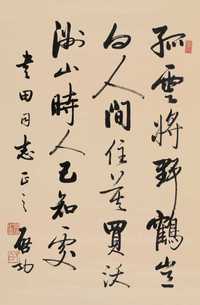 孤雲將野鶴豈
向人間住莫買沃
洲山時人已知處
老田同志正之
啟功